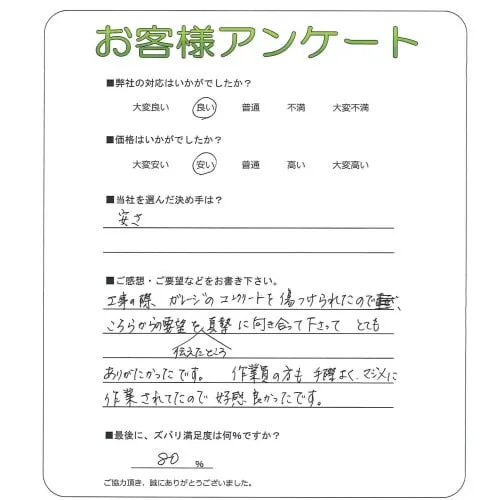 お客様アンケート
■弊社の対応はいかがでしたか?
大変良い 良い 普通 不満 大変不満
■価格はいかがでしたか?
大変安い 安い 普通 高い 大変高い
■当社を選んだ決め手は?
安さ
■ご感想・ご要望などをお書き下さい。
工事の際、ガレージのコンクリートを傷つけられたので
こちらからの要望を真摯に向き合って下さって とても
伝えたところ
ありがたかったです。 作業員の方も手際よく、マジメに
作業されてたので 好感良かったです。
■最後に、ズバリ満足度は何%ですか?
80 %
ご協力頂き、誠にありがとうございました。